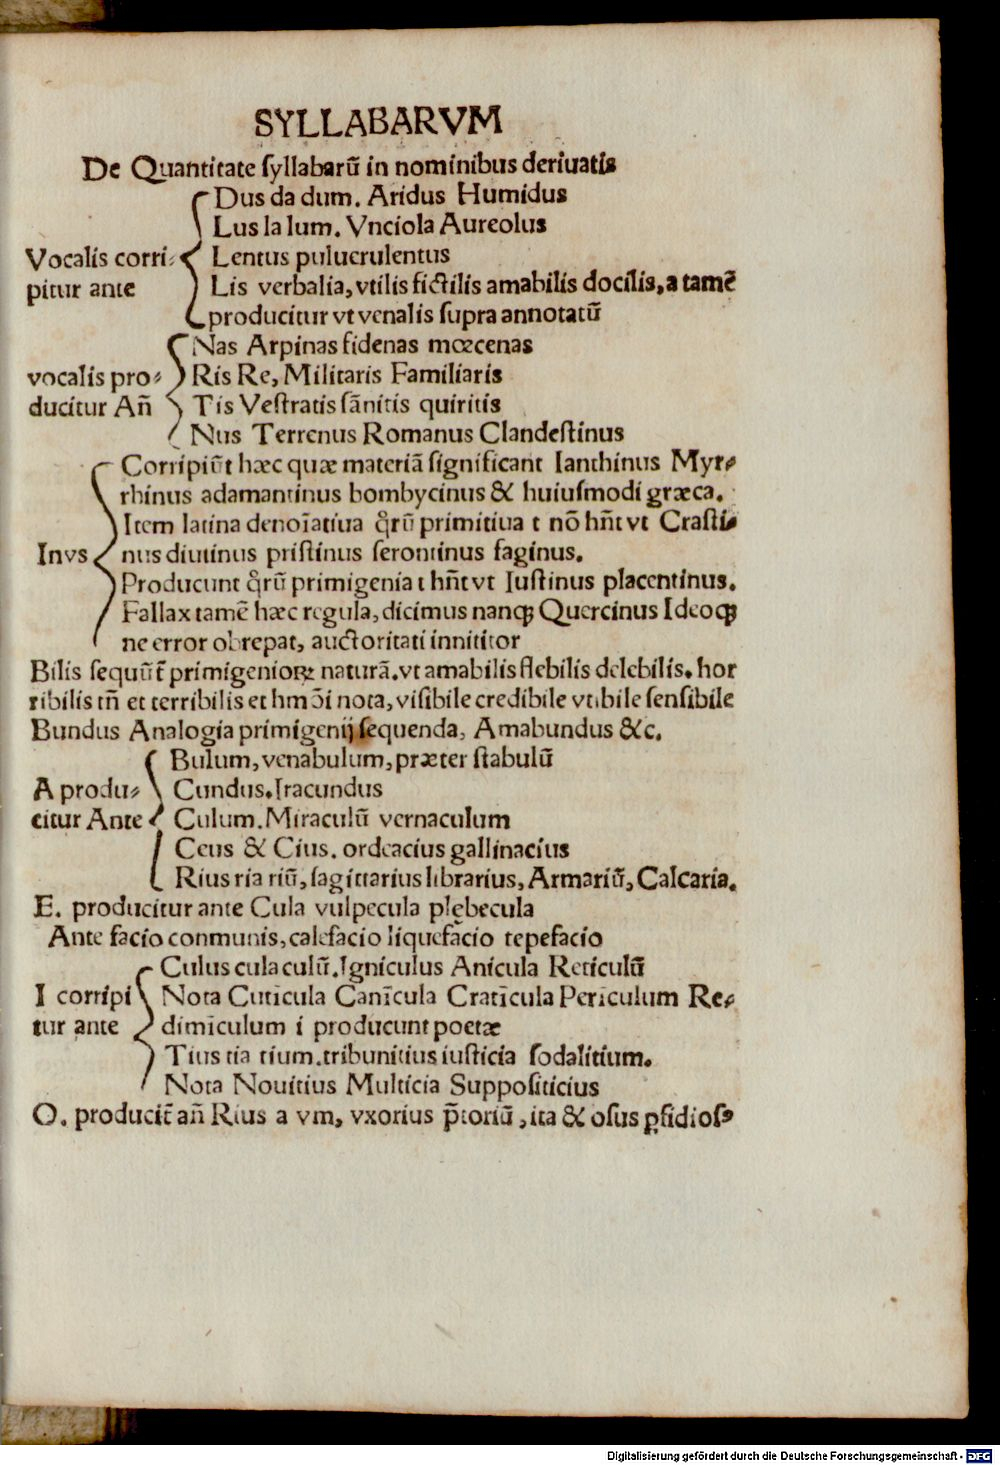 SYLLABARVM
De Quantitate ſyllabarū in nominibus deriuatis
Dus da dum. Aridus Humidus
Lus la lum. Vnciola Aureolus
Vocalis corri⸗ Lentus puluerulentus
pitur ante Lis verbalia, vtilis fictilis amabilis docilis, a tamē
producitur vt venalis ſupra annotatū
Nas Arpinas fidenas mœcenas
vocalis pro⸗ Ris Re, Militaris Familiaris
ducitur Añ Tis Veſtratis ſānitis quiritis
Nus Terrenus Romanus Clandeſtinus
Corripiūt hæc quæ materiā ſignificant Ianthinus Myr⸗
rhinus adamantinus bombycinus & huiusmodi græca.
Item latina denoĩatiua qͦrū primitiua t nō hñt vt Craſti⸗
Invs nus diutinus priſtinus ſerontinus faginus.
Producunt qͦrū primigenia t hñt vt Iuſtinus placentinus.
Fallax tamē hæc regula, dicimus nanqꝫ Quercinus Ideoqꝫ
ne error obrepat, auctoritati innititor
Bilis ſequūt̄ primigenioꝝ naturā. vt amabilis flebilis delebilis. hor
ribilis tñ et terribilis et hmōi nota, viſibile credibile vtibile ſenſibile
Bundus Analogia primigenij ſequenda, Amabundus &c.
Bulum, venabulum, præter ſtabulū
A produ⸗ Cundus. Iracundus
citur Ante Culum. Miraculū vernaculum
Ceus & Cius. ordeacius gallinacius
Rius ria riū, ſagittarius librarius, Armariū, Calcaria.
E. producitur ante Cula vulpecula plębecula
Ante facio conmunis, calefacio liquefacio tepefacio
Culus cula culū. Igniculus Anicula Reticulū
I corripi Nota Cuticula Canīcula Cratīcula Perīculum Re⸗
tur ante dimīculum i producunt poetæ
Tius tia tium. tribunitius iuſticia ſodalitium.
Nota Nouitius Multicia Suppoſiticius
O. producit̄ añ Rius a vm, vxorius p̄toriū, ita & oſus ꝑfidioſꝰ
Digitalisierung gefördert durch die Deutsche Forschungsgemeinschaft - DFG